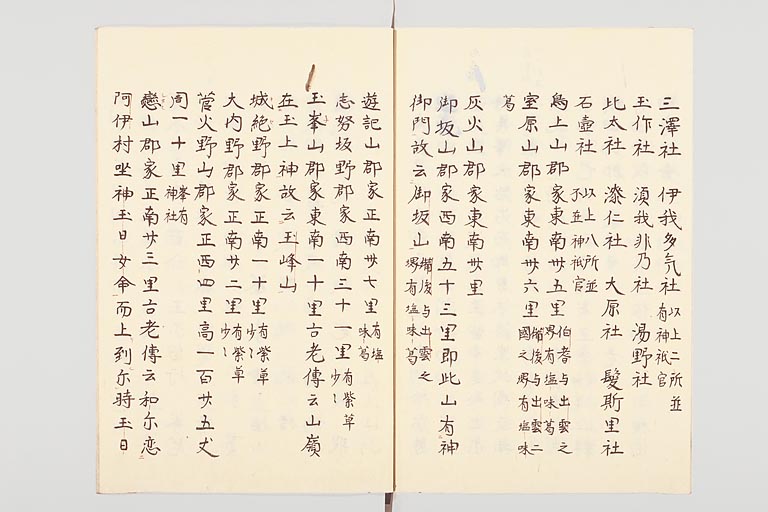 三澤社　伊我多気社 以上二所並有神祇官
玉作社　湏我非乃社　湯野社
比太社　漆仁社　大原社　髪斯里社
石壷社 以上八所並不在神祇官
鳥上山郡家東南卅五里 伯耆与出雲之堺有塩味葛
室原山郡家東南卅六里 備後与出雲二國之堺有塩味
葛
灰火山郡家東南卅里
御坂山郡家西南五十三里即此山有神
御門故云御坂山 備後与出雲之堺有塩味葛
遊記山郡家正南卅七里 有塩味葛
志努坂野郡家西南三十一里 有紫草少々
玉峯山郡家東南一十里古老傳云山嶺
在玉上神故云玉峰山
城紲野郡家正南一十里 有紫草少々
大内野郡家正南廿二里 有紫草少々
菅火野山郡家正西四里高一百廿五丈
周一十里 峯有神社
戀山郡家正南廿三里古老傳云和尓恋
阿伊村坐神玉日女命而上到尓時玉日